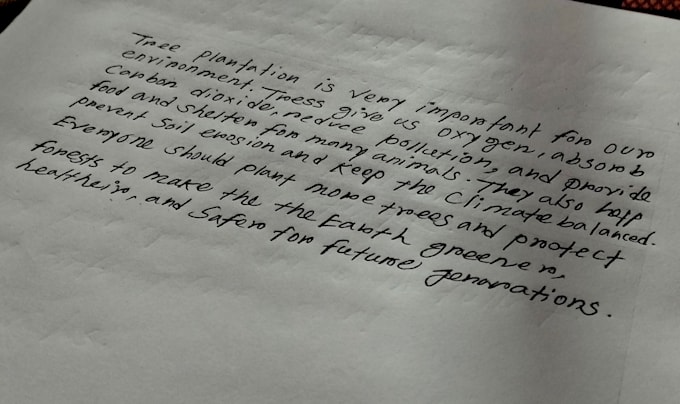 Tree plantation is very important for our
environment. Tress give us oxygen, absorb
Carbon dioxide, reduce pollution, and provide
food and shelter for many animals. They also help
prevent Soil erosion and Keep the Climate balanced.
Everyone should plant more trees and protect
forests to make the the Earth greener,
healtheir, and Safer for future generations.